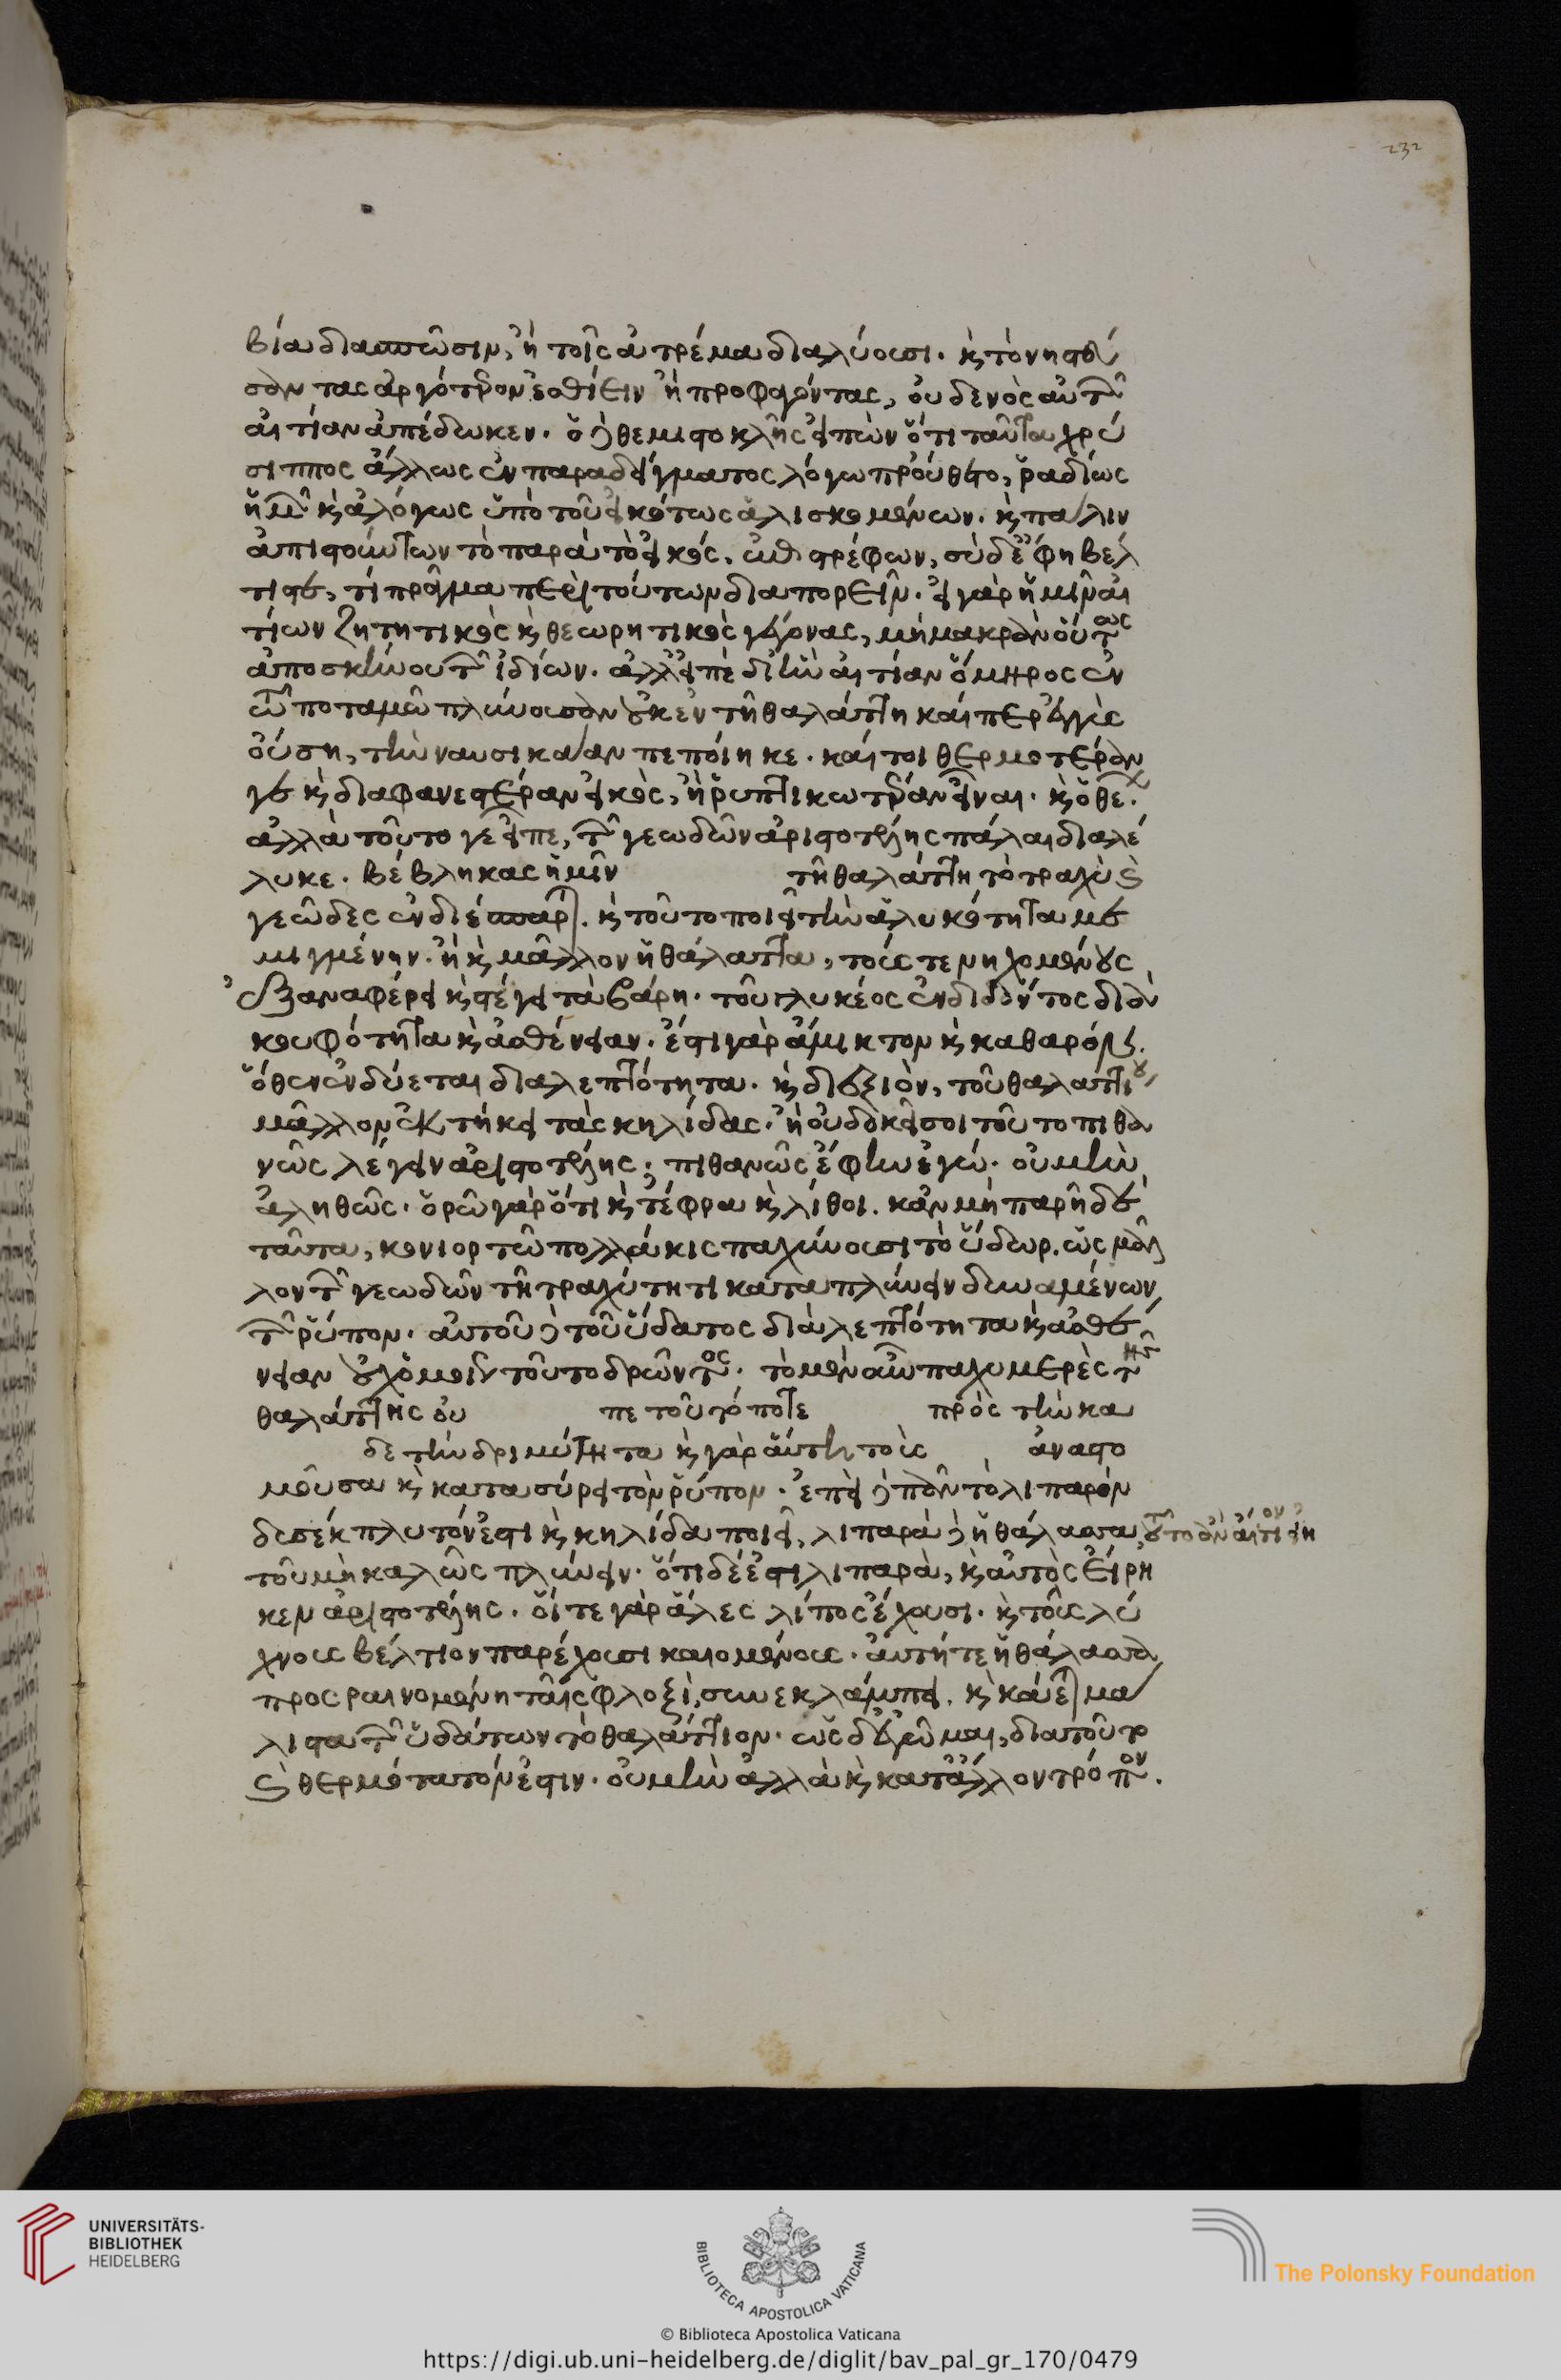 βία διασπῶσιν, ἢ τοῖς ἀτρέμα διαλύουσι. κ τὸ νηστεύ
σαντας ἀργότερον ἐσθίειν ἢ προφαγόντας, οὐδενὸς αὐτῶν
αἰτίαν ἀπέδωκεν. ὁ δὲ θεμιστοκλῆς εἰπὼν ὅτι ταῦτα χρύ
σιππος ἄλλως ἐν παραδείγματος λόγω προύθετο, ῥαδίως
ἡμῶν κ ἀλόγως ὑπὸ τοῦ εἰκότως ἁλισκομένων. κ πάλιν
ἀπιστούντων τὸ παρὰ τὸ εἰκός, ἐπιστρέφων, σὺ δ' ἔφη βέλ
τιστε, τί πρᾶγμα περὶ τούτων διαπορεῖν. εἰ γὰρ ἡμῖν αἰ
τίων ζητητικὸς κ θεωρητικὸς γέγονας, μὴ μακρὰν οὕτως
ἀποσκήνου τῶν ἰδίων. ἀλλ' εἰπὲ δι' ἣν αἰτίαν ὅμηρος ἐν
τῶ ποταμῶ πλύνουσαν οὐκ ἐν τῆ θαλάττη καίπερ ἐγγὺς
οὔση, τὴν ναυσικάαν πεποίηκε. καίτοι θερμοτέραν
γε κ διαφανεστέραν εἰκὸς, ἢ ῥυπτικωτέραν εἶναι. κ ὁ θέ.
ἀλλὰ τοῦτο γε εἶπε, τῶν γεωδῶν ἀριστοτέλης πάλαι διαλέ
λυκε. βέβληκας ἡμῖν τῆ θαλάττη τὸ τραχὺ κ
γεῶδες ἐνδιέσπαρται. κ τοῦτο ποιεῖ τὴν ἁλυκότητα με
μιγμένην. ἢ κ μᾶλλον ἡ θάλαττα, τούς τε νηχομένους
ἐξαναφέρει κ στέγει τὰ βάρη. τοῦ γλυκέος ἐνδιδόντος διὰ
κουφότητα κ ἀσθένειαν. ἔστι γὰρ ἄμικτον κ καθαρόν.
ὅθεν ἐνδύεται διὰ λεπτότητα. κ διεξιὸν, τοῦ θαλαττίου
μᾶλλον ἐκτήκει τὰς κηλίδας. ἢ οὐ δοκεῖ σοι τοῦτο πιθα
νῶς λέγειν ἀριστοτέλης; πιθανῶς ἔφην ἐγώ. οὐ μὴν
ἀληθῶς. ὁρῶ γὰρ ὅτι κ τέφρα κ λίθοι. κἂν μὴ παρῆ δὲ
ταῦτα, κονιορτῶ πολλάκις παχύνουσι τὸ ὕδωρ. ὡς μᾶλ
λον τῶν γεωδῶν τῆ τραχύτητι καταπλύνειν δυναμένων
τὸν ῥύπον. αὐτοῦ δὲ τοῦ ὕδατος διὰ λεπτότητα κ ἀσθέ
νειαν οὐχ ὁμοίως τοῦτο δρῶντος. τὸ μὲν οὖν παχυμερὲς τῆς
θαλάττης οὐ πε τοῦτό ποτε πρὸς τὴν κα
δε τὴν δριμύτητα κ γὰρ αὕτη τοὺς ἀναστο
μοῦσα κ κατασύρει τὸν ῥύπον. ἐπεὶ δὲ πᾶν τὸ λιπαρὸν
δυσέκπλυτόν ἐστι κ κηλίδα ποιεῖ, λιπαρὰ δὲ ἡ θάλασσα, τοῦτο ἂν αἴτιον εἴη
τοῦ μὴ καλῶς πλύνειν. ὅτι δέ ἐστι λιπαρὰ, κ αὐτὸς εἴρη
κεν ἀριστοτέλης. οἵ τε γὰρ ἅλες λίπος ἔχουσι. κ τοὺς λύ
χνους βέλτιον παρέχουσι καιομένους. αὐτή τε ἡ θάλασσα
προσραινομένη ταῖς φλοξὶ, συνεκλάμπει. κ κάεται μά
λιστα τῶν ὑδάτων τὸ θαλάττιον. ὡς δ' ἐγῶμαι, διατοῦτο
κ θερμότατόν ἐστιν. οὐ μὴν ἀλλὰ κ κατ' ἄλλον τρόπον.
232
UNIVERSITÄTS-
BIBLIOTHEK
HEIDELBERG
BIBLIOTECA APOSTOLICA VATICANA
The Polonsky Foundation
© Biblioteca Apostolica Vaticana
https://digi.ub.uni-heidelberg.de/diglit/bav_pal_gr_170/0479